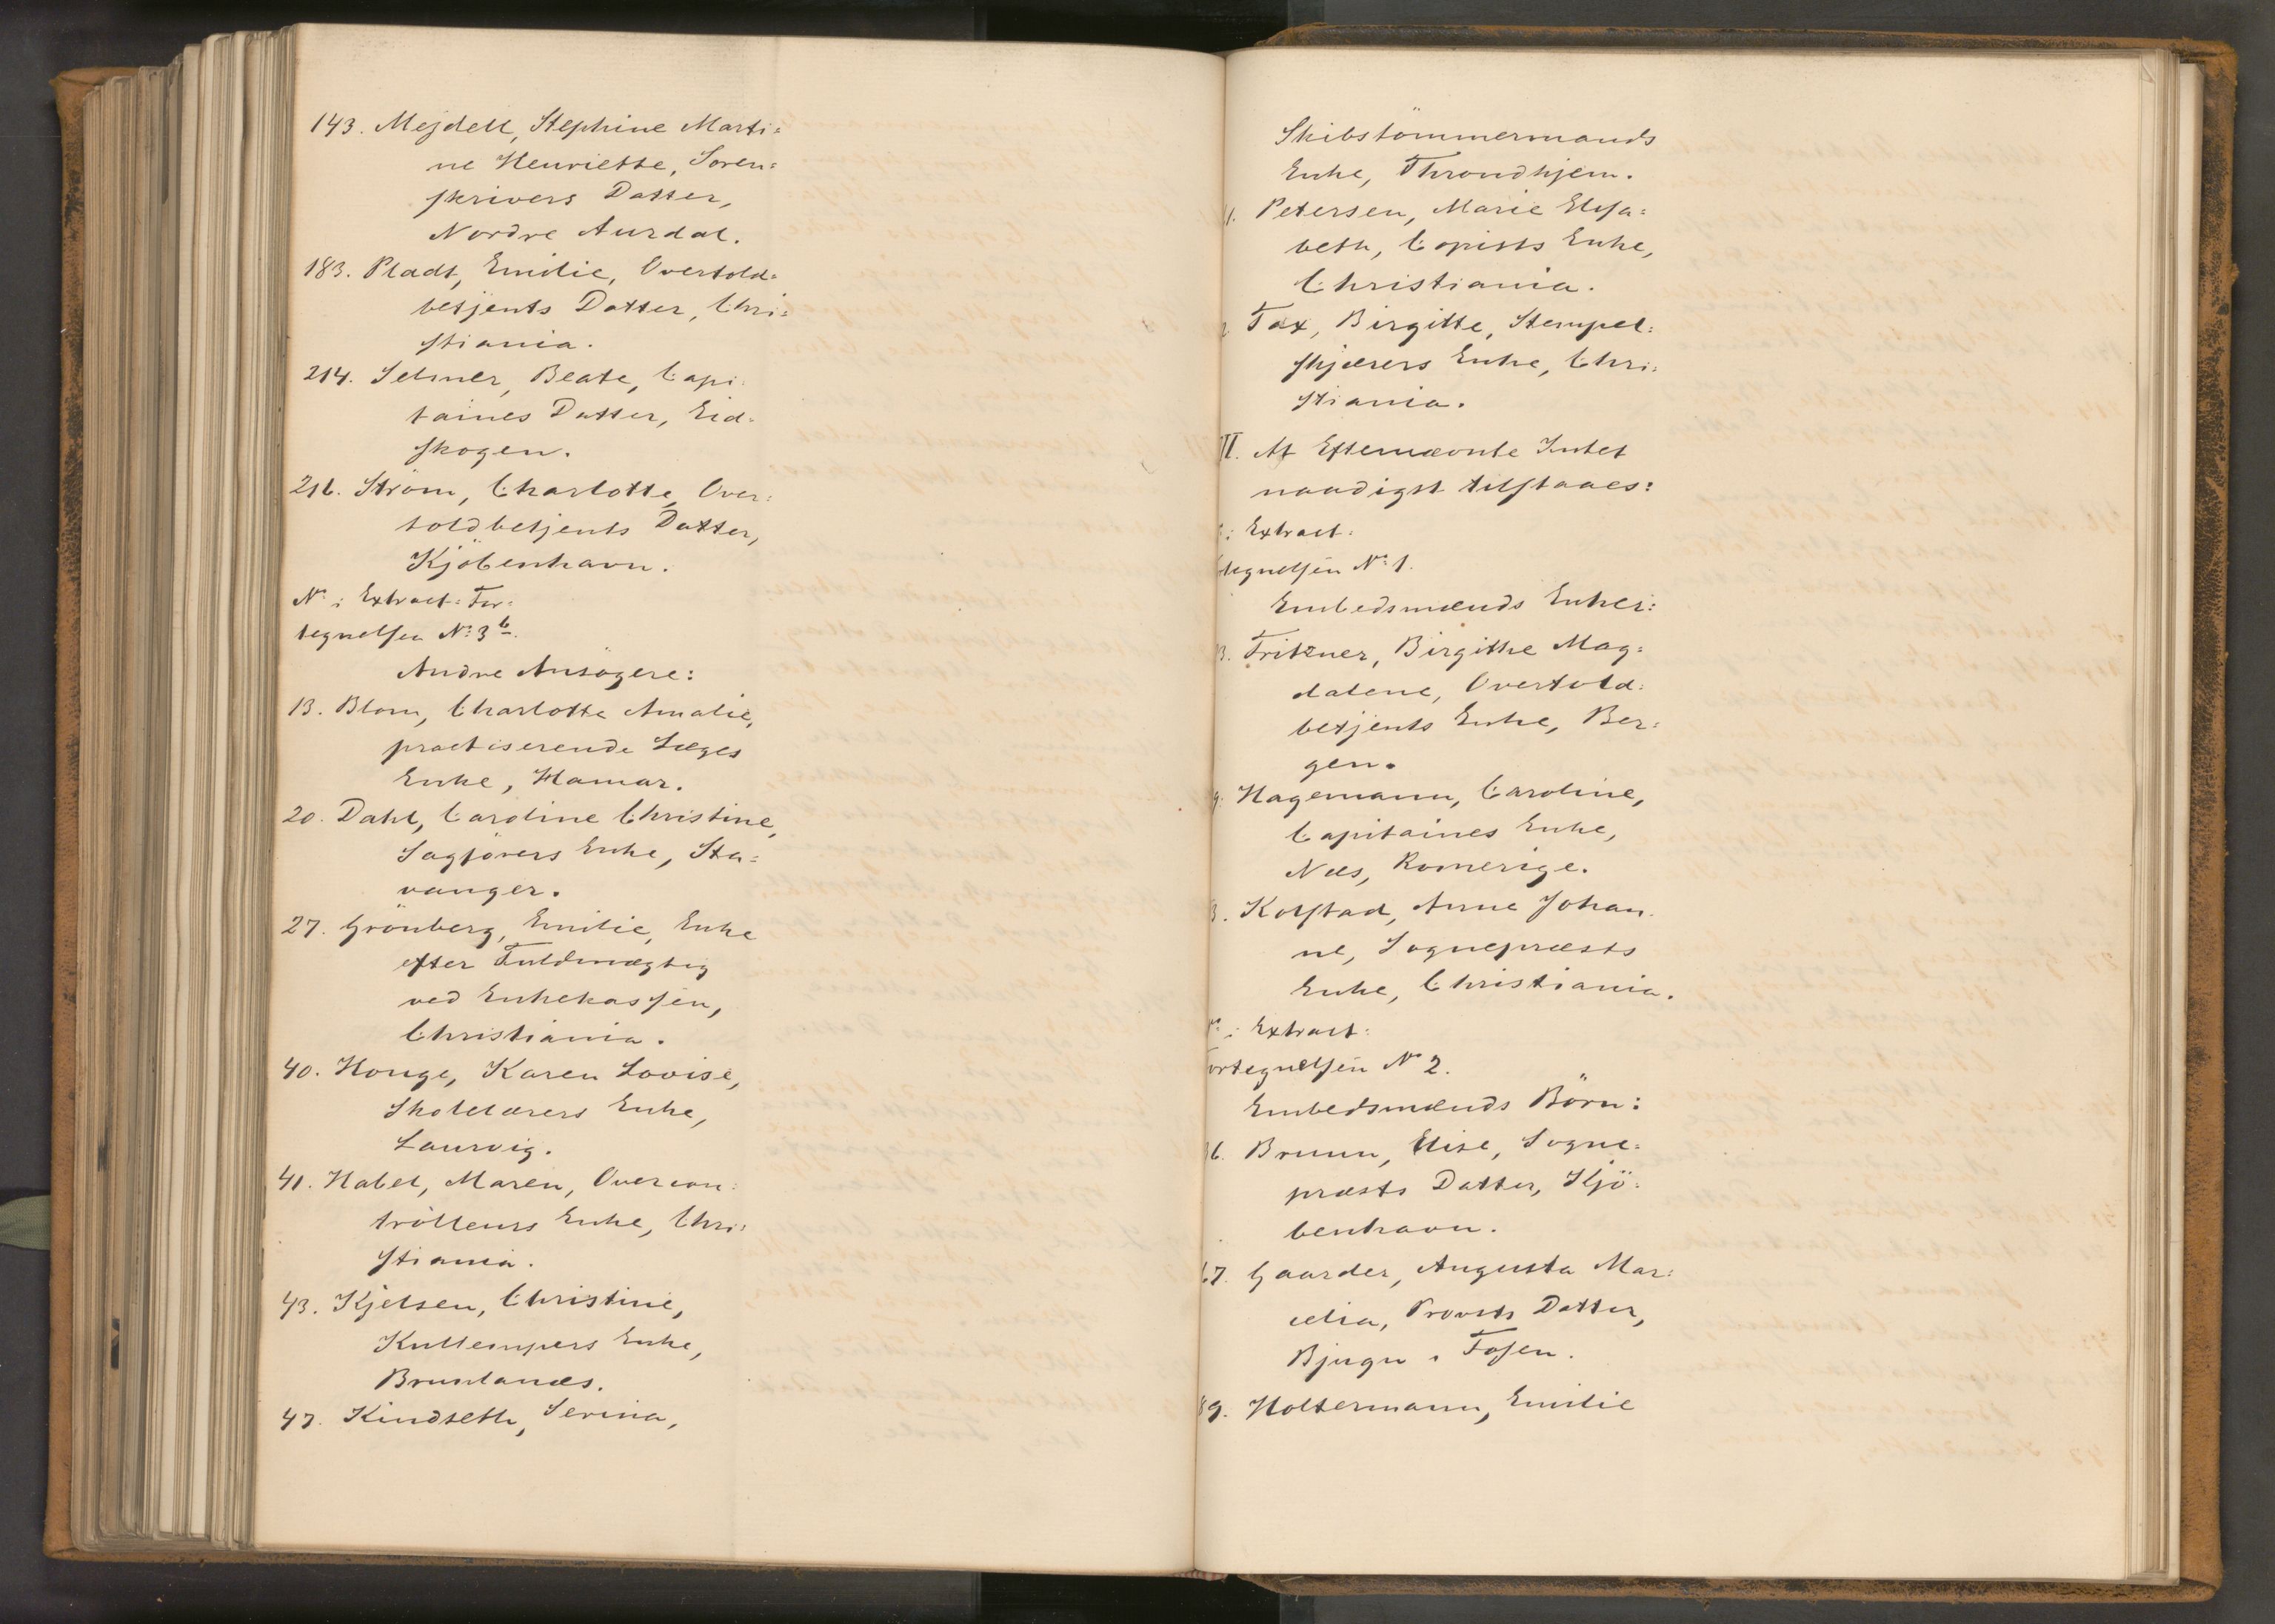 143. Mejdell, Stephine Marti=
ne Henriette, Soren=
skrivers Datter,
Nordre Aurdal.
183. Pladt, Emilie, Overtold=
betjents Datter, Chri=
stiania.
214. Selmer, Beate, Capi=
taines Datter, Eid=
skogen.
216. Ström, Charlotte, Over=
toldbetjents Datter,
Kjöbenhavn.
No i Extract=For=
tegnelsen No 3 b.
Andre Ansögere:
13. Blom, Charlotte Amalie,
practiserende Læges
Enke, Hamar.
20. Dahl, Caroline Christine,
Sagförers Enke, Sta=
vanger.
27. Grönberg, Emilie, Enke
efter Fuldmægtig
ved Enkekassen,
Christiania.
40. Houge, Karen Lovise,
Skolelærers Enke,
Laurvig.
41. Habel, Maren, Overcon=
trölleurs Enke, Chri=
stiania.
43. Kjelsen, Christine,
Kullempers Enke,
Brunlanæs.
47. Kindseth, Serina,
Skibstömmermands
Enke, Throndhjem.
Petersen, Marie Elisa=
beth, Copists Enke,
Christiania.
Fax, Birgitte, Stempel=
skjærers Enke, Chri=
stiania.
II. At Efternævnte Intet
naadigst tilstaaes:
i Extract=
tegnelsen No 1.
Embedsmænds Enker:
3. Fritzner, Birgithe Mag=
dalene, Overtold=
betjents Enke, Ber=
gen.
9. Hagemann, Caroline,
Capitaines Enke,
Næs, Romerige.
3. Kolstad, Anne Johan=
ne, Sognepræsts
Enke, Christiania.
No i Extract=
Fortegnelsen No 2.
Embedsmænds Börn:
36. Bruun, Elise, Sogne=
præsts Datter, Kjö=
benhavn.
67. Gaarder, Augusta Mar=
celia, Provsts Datter,
Bjugn i Fosen.
89. Holtermann, Emilie